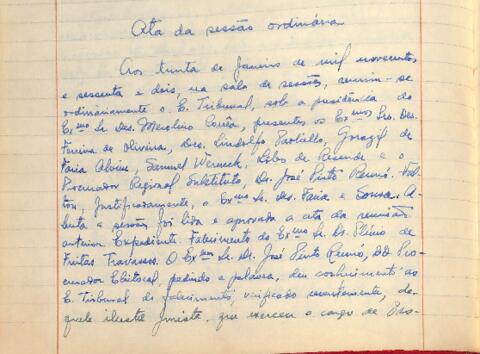 Ata da sessão ordinária
Aos trinta de Janeiro de mil novecentos
e sessenta e dois, na sala de sessões, reuniu-se
ordinàriamente o E. Tribunal, sob a presidência do
Exmo Sr. Des. Merolino Corrêa, presentes os Exmos Srs. Des.
Ferreira de Oliveira, Drs. Lindolfo Paoliello, Gorazil de
Faria Alvim, Samuel Werneck, Lobo de Resende e o
Procurador Regional Substituto, Dr. José Pinto Rennó. Fal-
tou, justificadamente, o Exmo Sr. Des. Faria e Sousa. A-
berta a sessão, foi lida e aprovada a ata da reunião
anterior. Expediente: Falecimento do Exmo Sr. Dr. Plínio de
Freitas Travassos. O Exmo Sr. Dr. José Pinto Rennó, DD. Pro-
curador Eleitoral, pedindo a palavra, deu conhecimento ao
E. Tribunal do falecimento, verificado recentemente, da-
quele ilustre jurista, que exerceu o cargo de Pro-